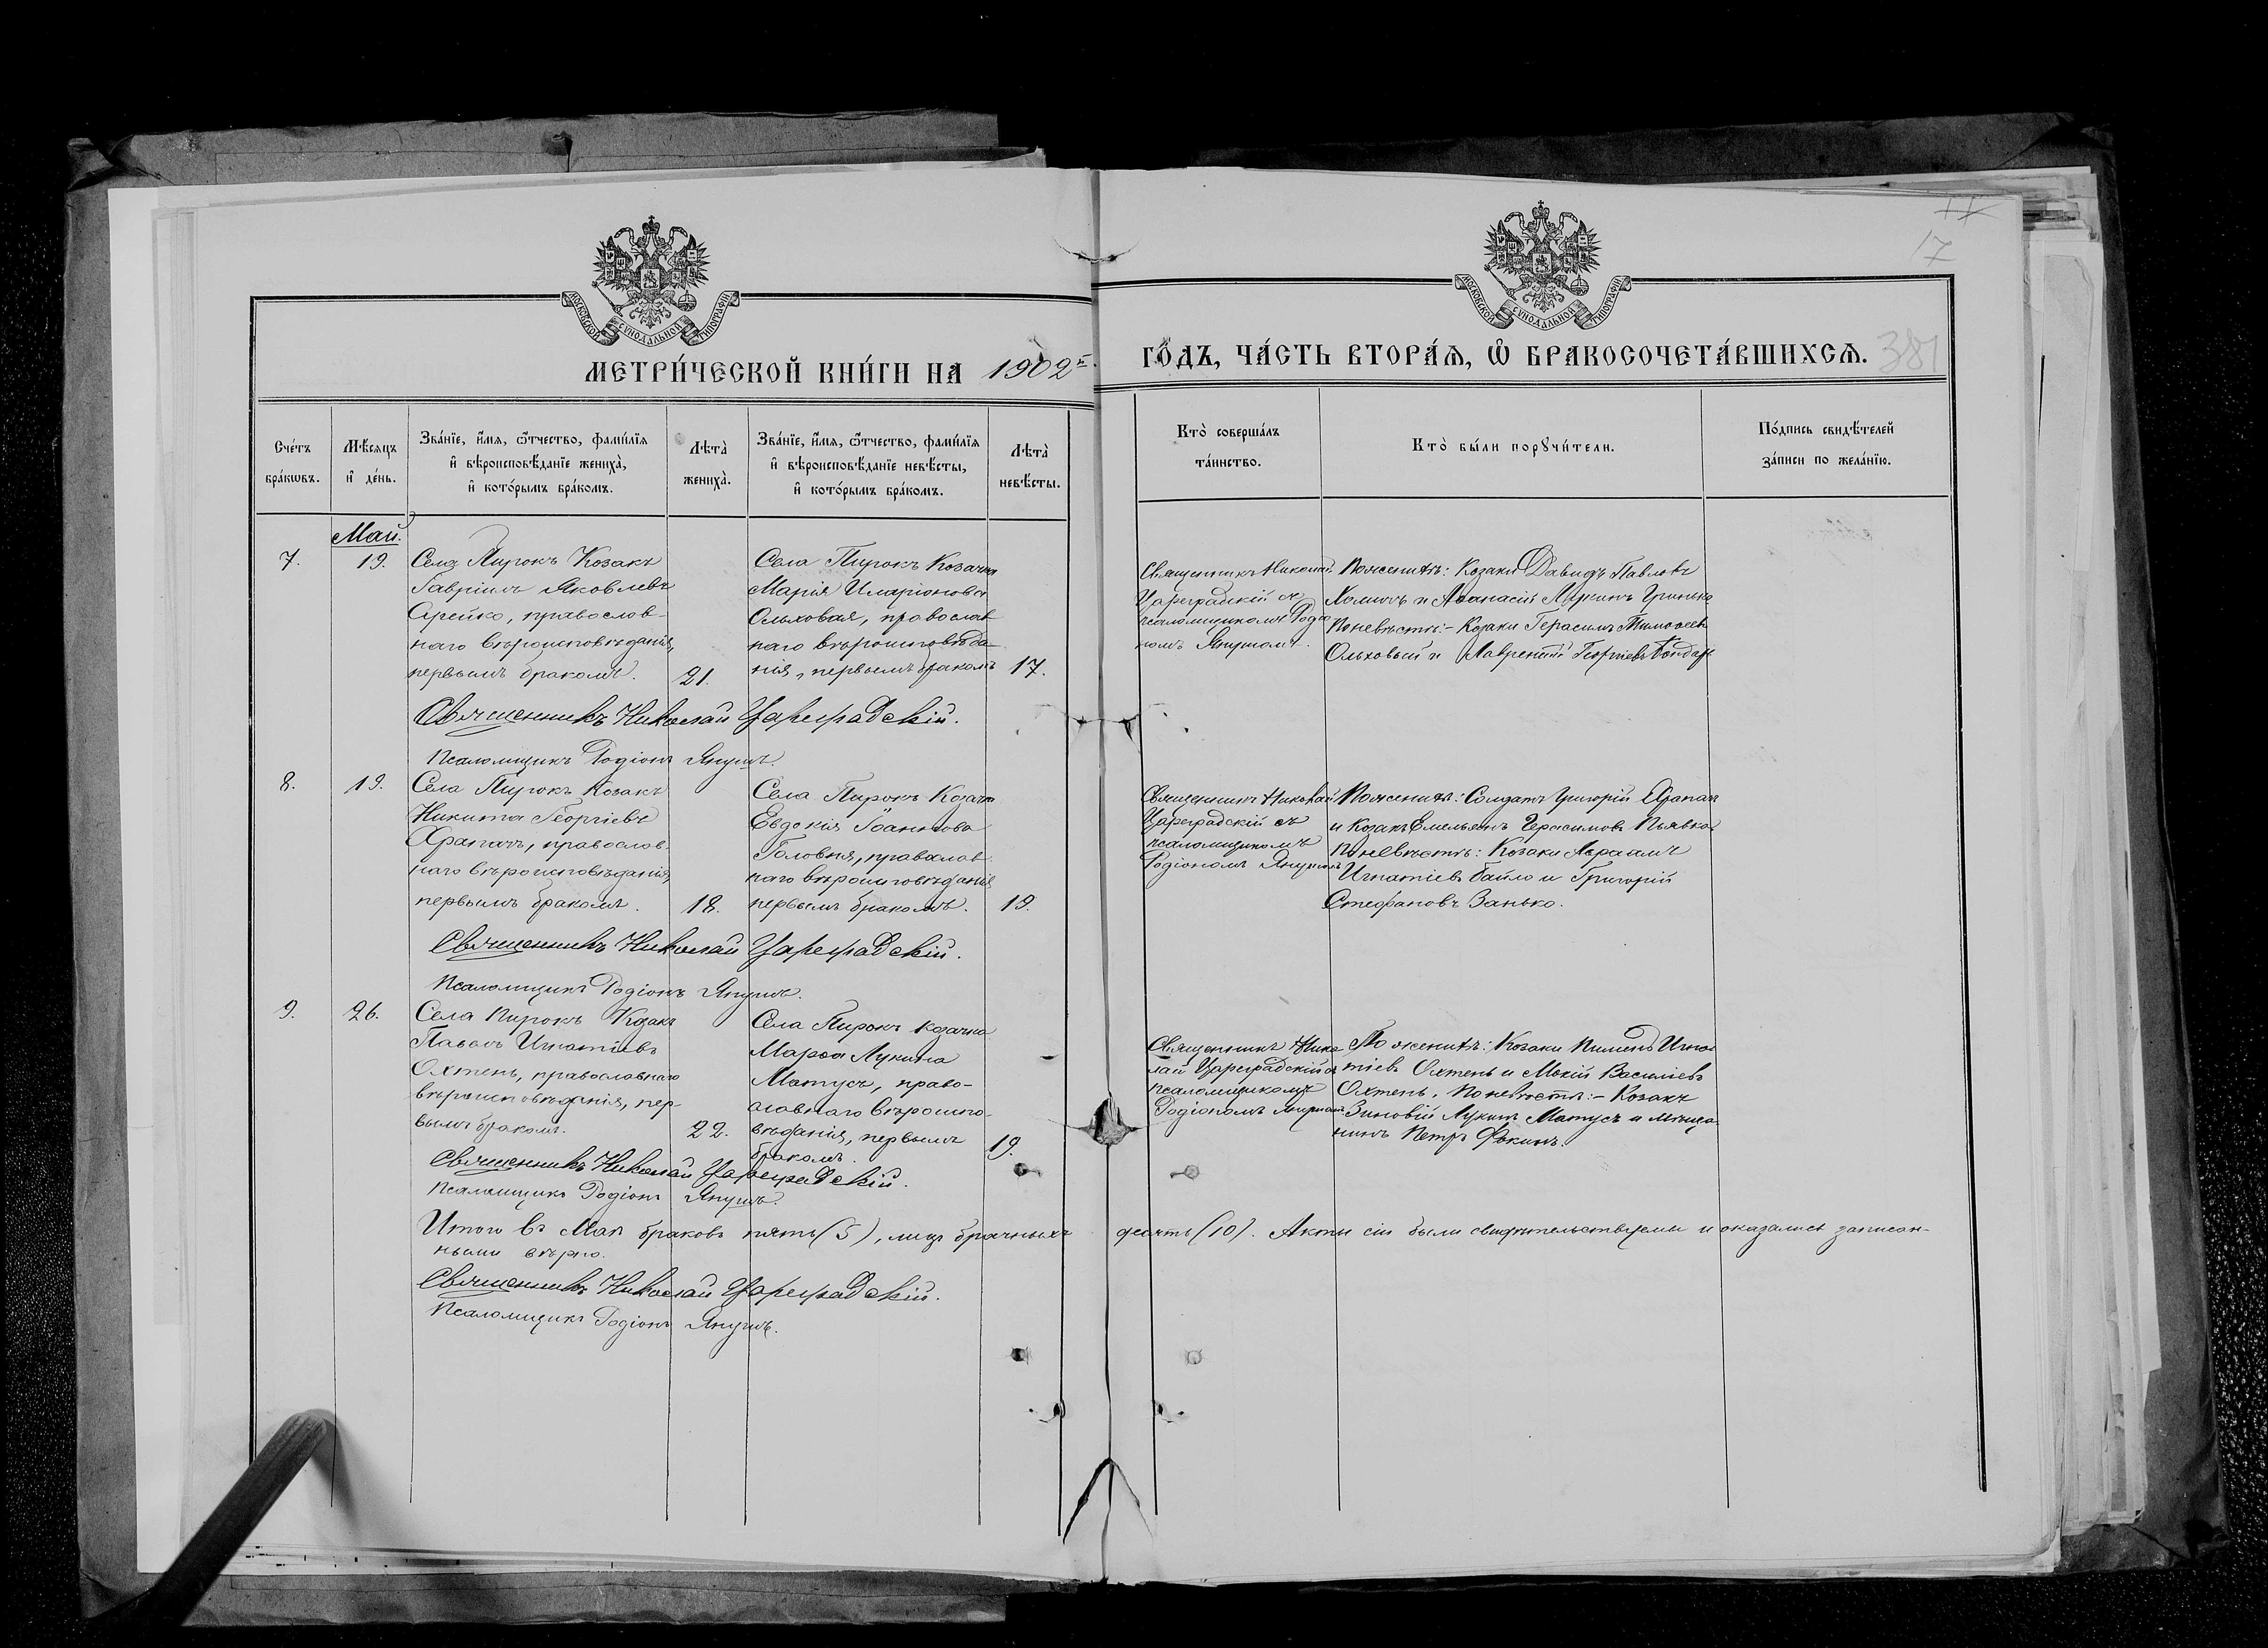 17
МОСКОВСКОЙ СУНОДАЛЬНОЙ ТИПОГРАФІИ
МОСКОВСКОЙ СУНОДАЛЬНОЙ ТИПОГРАФІИ
МЕТРИ́ЧЕСКОЙ КНИ́ГИ НА 1902 г.
ГО́ДЪ, ЧА́СТЬ ВТОРА́Я, Ѡ҆ БРАКОСОЧЕТА́ВШИХСѦ.
381
Сче́тъ бра́кѡвъ.
Мѣ́сяцъ и҆ де́нь.
Зва́нїе, и҆́мя, ѻ҆́тчество, фами́лїя и҆ вѣроисповѣ́данїе жениха̀, и҆ кото́рымъ бра́комъ.
Лѣта̀ жениха̀.
Зва́нїе, и҆́мя, ѻ҆́тчество, фами́лїя и҆ вѣроисповѣ́данїе невѣ́сты, и҆ кото́рымъ бра́комъ.
Лѣта̀ невѣ́сты.
Кто̀ соверша́лъ та́инство.
Кто̀ бы́ли порꙋчи́тели.
По́дпись свидѣ́телей за́писи по жела́нїю.
Май.
7.
19.
Села Пирокъ Козакъ
Гавріилъ Яковлевъ
Орейко, православ-
наго вѣроисповѣданія,
первымъ бракомъ.
21.
Села Пирокъ Козачка
Марія Иларіонова
Ольховая, православ
наго вѣроисповѣда-
нія, первымъ бракомъ
17.
Священникъ Николай
Цареградскій съ
псаломщикомъ Родіо
номъ Янушемъ.
По женихѣ: Козаки Давидъ Павловъ
Хомичъ и Аѳанасій Лукинъ Гринько
По невѣстѣ:- Козаки Герасимъ Тимоѳеевъ
Ольховый и Лаврентій Георгіевъ Бондарь
Священникъ Николай Цареградскій.
Псаломщикъ Родіонъ Янушъ.
8.
19.
Села Пирокъ Козакъ
Никита Георгіевъ
Храпачъ, православ.
наго вѣроисповѣданія,
первымъ бракомъ.
18.
Села Пирокъ Козачка
Евдокія Іоаннова
Головня, православ.
наго вѣроисповѣданія
первымъ бракомъ.
19.
Священникъ Николай
Цареградскій съ
псаломщикомъ
Родіономъ Янушемъ
По женихѣ: Солдатъ Григорій Храпач
и Козакъ Емельянъ Герасимовъ Пьявка.
По невѣстѣ: Козаки Авраамъ
Игнатіевъ Байло и Григорій
Стефановъ Занько.
Священникъ Николай Цареградскій.
Псаломщикъ Родіонъ Янушъ.
9.
26.
Села Пирокъ Козакъ
Павелъ Игнатіевъ
Охтень, православнаго
вѣроисповѣданія, пер-
вымъ бракомъ.
22.
Села Пирокъ Козачка
Марѳа Лукина
Матусъ, право-
славнаго вѣроиспо-
вѣданія, первымъ
бракомъ.
19.
Священникъ Нико
лай Цареградскій съ
псаломщикомъ
Родіономъ Янушемъ
По женихѣ: Козаки Пименъ Игна
тіевъ Охтень и Мокій Василіевъ
Охтень. По невѣстѣ:- Козакъ
Зиновій Лукинъ Матусъ и мѣща
нинъ Петръ Фокинъ.
Священникъ Николай Цареградскій.
Псаломщикъ Родіонъ Янушъ.
Итого въ Маѣ браковъ пять (5), лицъ брачныхъ десять (10). Акты сіи были свидѣтельствуемы и оказались записан-
ными вѣрно.
Священникъ Николай Цареградскій.
Псаломщикъ Родіонъ Янушъ.